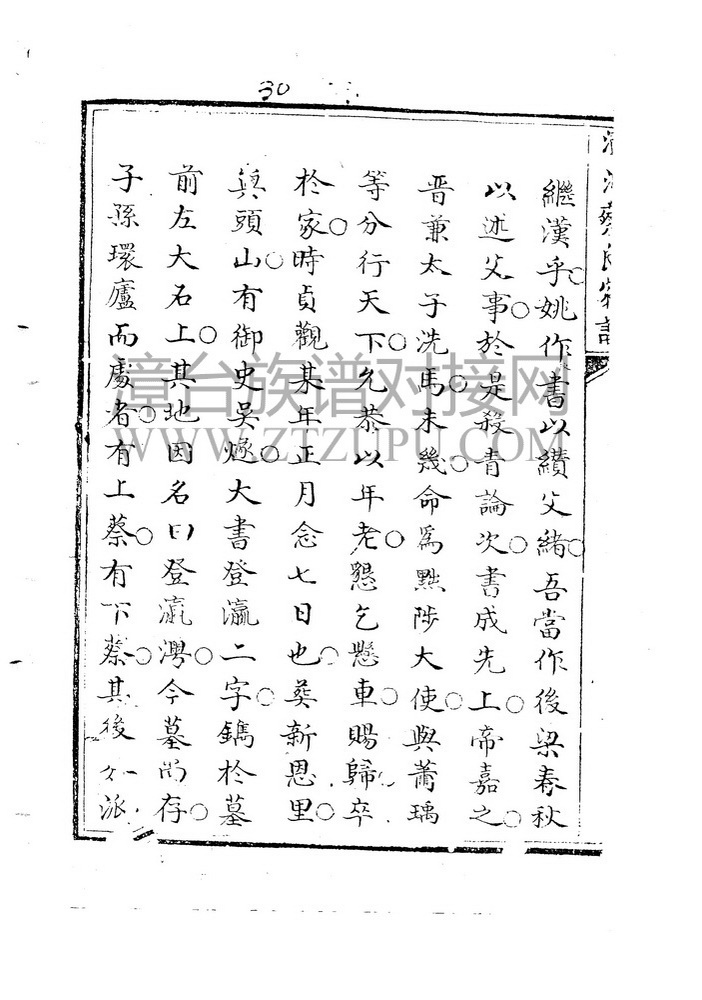 30
蔡氏家譜
繼漢乎姚作書以纘父緒吾當作後梁春秋
以述父事於是殺青論次書成先上帝嘉之
晋兼太子洗馬未幾命為黜陟大使與蕭瑀
等分行天下允恭以年老懇乞懸車賜歸卒
於家時貞觀某年正月念七日也葬新恩里
頭山有御史吳燧大書登瀛二字鐫於墓
前左大石上其地因名曰登瀛灣今墓尚存
子孫環廬而處者有上蔡有下蔡其後派
漳台族谱对接网
WWW.ZTZUPU.COM